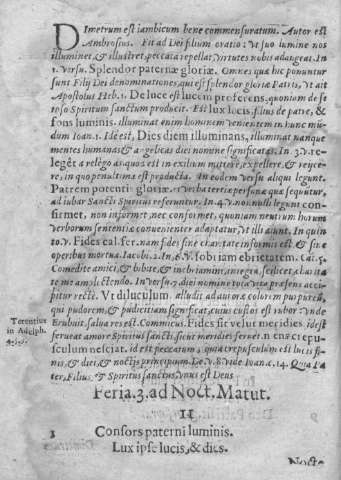 Dimetrum est iambicum bene commensuratum. Autor est
Ambrosius. Fit ad Dei filium oratio: vt suo lumine nos
illuminet & illustret, peccata repellat, virtutes nobis adaugeat. In
1. versu. Splendor paternæ gloriæ. Omnes quæ hic ponuntur
sunt Filij Dei denominationes, qui est splendor gloriæ Patris, vt ait
Apostolus Heb. 1. De luce est lucem proferens, quoniam de se
Spiritum Sanctum producit. Est lux lucis, filius de patre, &
fons luminis. illuminat enim hominem venientem in hunc mũ-
dum Ioan. 1. Id est, Dies diem illuminans, illuminat nanque
mentes humanas & angelicas diei nomine significatas. In 3. v. re-
legēt a relego as quod est in exilium mittere, expellere, & reijce-
re, in quo penultima est producta. In eodem versu aliqui legunt.
Patrem potentis gloriæ, et verba tertiæ personæ quæ sequuntur,
ad iubar Sancti Spiritus referuntur. In 4. v. non nulli legunt con-
firmet, non informet, nec conformet, quoniam neutrum horum
verborum sententiæ convenienter adaptatur, vt illi aiunt. In quin-
to. v. Fides nam fides sine charitate informis est & sine
operibus mortua. Iacobi. 2. In 6. v. sobriam ebrietatem. Cāt. 5.
Comedite amici, & bibite, & inebriamini, integra, scilicet, charita
te me amplectendo. In versu 7 diei nomine tota vita præsens acci-
pitur recti. Vt diluculum. alludit ad auroræ colorem purpureũ,
qui pudorem, & pudicitiam significat, cuius custos est rubor. vnde
Terentius Erubuit, salua res est. Commicus. Fides sit velut meridies id est
in Adelph. ferueat amore Spiritus sancti, sicut meridies feruet. Mens crepu-
sculum nesciat. id est peccatum, quia crepusculum est lucis fi-
nis, & diei, & noctis principium. De v. 8. vide Ioanẽ. 14. Quia Pa-
ter, Filius, & Spiritus sanctus, vnus est Deus
Feria. 3. ad Noct. Matut.
II
Consors paterni luminis.
Lux ipse lucis, & dies.
Nocte